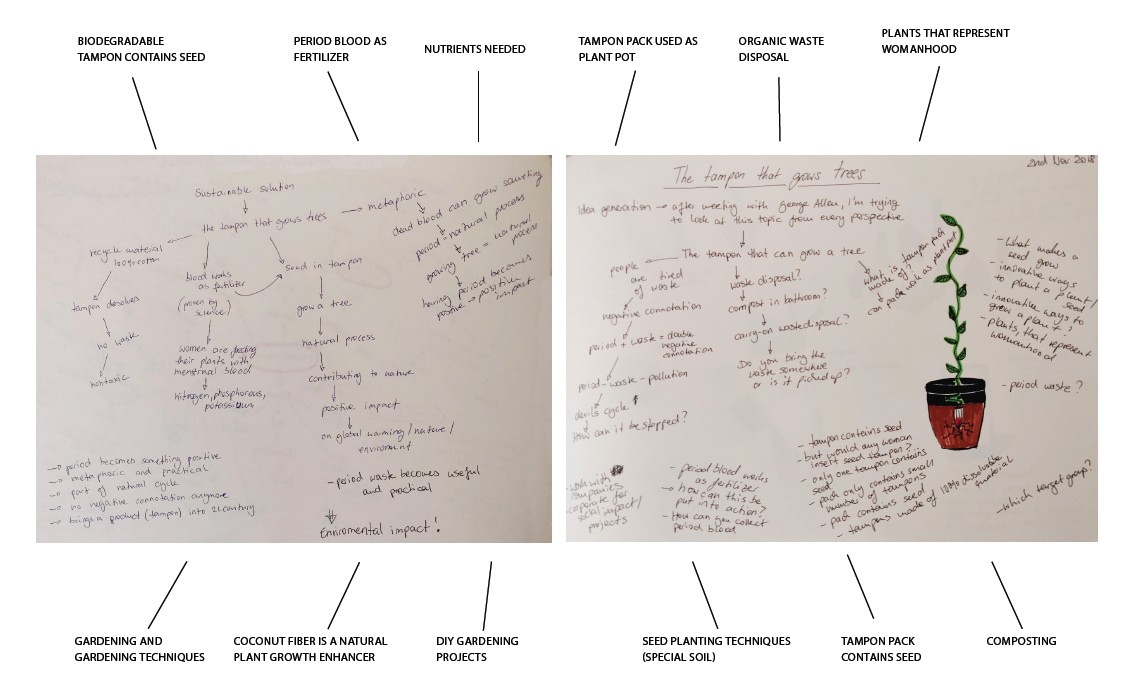 BIODEGRADABLE
TAMPON CONTAINS SEED
PERIOD BLOOD AS
FERTILIZER
NUTRIENTS NEEDED
TAMPON PACK USED AS
PLANT POT
ORGANIC WASTE
DISPOSAL
PLANTS THAT REPRESENT
WOMANHOOD
Sustainable solution
the tampon that grows trees
metaphoric
dead blood can grow something
period = natural process
growing tree = natural
process
having period becomes
positive → positive
impact
recycle material
100% cotton
tampon desolves
no waste
non toxic
blood works
as fertiliter
(proven by
science)
women are feeding
their plants with
menstrual blood
nitrogen, phosphorous,
potassium
seed in tampon
grow a tree
natural process
contributing to nature
positive impact
on global warming / nature /
enviroment
- period waste becomes useful
and practical
Enviromental impact!
→ period becomes something positive
→ metaphoric and practical
→ part of natural cycle
→ no negative connotation anymore
→ brings a product (tampon) into 21 century
2nd Nov 2018
The tampon that grows trees
Idea generation → after meeting with George Allen, I'm trying
to look at this topic from every perspective
The tampon that can grow a tree
people
are tired
of waste
negative connotation
period + waste = double
negative
connotation
period - waste - pollution
devils cycle
How can it be stopped?
waste disposal?
compost in bathroom?
carry-on waste disposal?
Do you bring the
waste somewhere
or is it picked up?
what is tampon pack
made of?
can pack work as plant pot
- What makes a
seed grow
- innovative ways
to plant a plant/
seed
- innovative ways to
grow a plant?
- plants, that represent
womanhood
- period waste?
- work with
companies
corporate for
social impact/
projects
- period blood works
as fertilizer
→ how can this be
put into action?
- How can you collect
period blood
- tampon contains seed
- but would any woman
insert seed tampon?
- only one tampon contains
seed
- pack only contains small
number of tampons
- pack contains seed
- tampons made of 100% dissolvable
material
- which target group?
GARDENING AND
GARDENING TECHNIQUES
COCONUT FIBER IS A NATURAL
PLANT GROWTH ENHANCER
DIY GARDENING
PROJECTS
SEED PLANTING TECHNIQUES
(SPECIAL SOIL)
TAMPON PACK
CONTAINS SEED
COMPOSTING